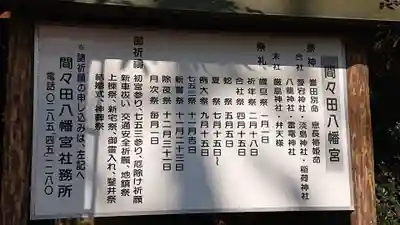 間々田八幡宮
祭神 誉田別命 息長帯姫命
合社 愛宕神社・淡島神社・稲荷神社
八龍神社・雷電神社
末社 厳島神社・弁天様
祭礼 歳旦祭 一月一日
祈年祭 二月十八日
合社祭 四月十五日
蛇祭 五月五日
夏祭 七月十五日～
例大祭 九月十五日
七五三祭 十一月吉日
新嘗祭 十一月二十三日
除夜祭 十二月三十一日
月次祭 毎月二日
御祈禱 初宮参り、七五三参り、厄除け祈願
新車祓い、交通安全祈願、地鎮祭
上棟祭、新宅祭、御霊入れ、鑿井祭
結婚式、神葬祭
※諸祈願の申し込みは、左記へ
間々田八幡宮社務所
電話〇二八五‐四五‐一二八〇